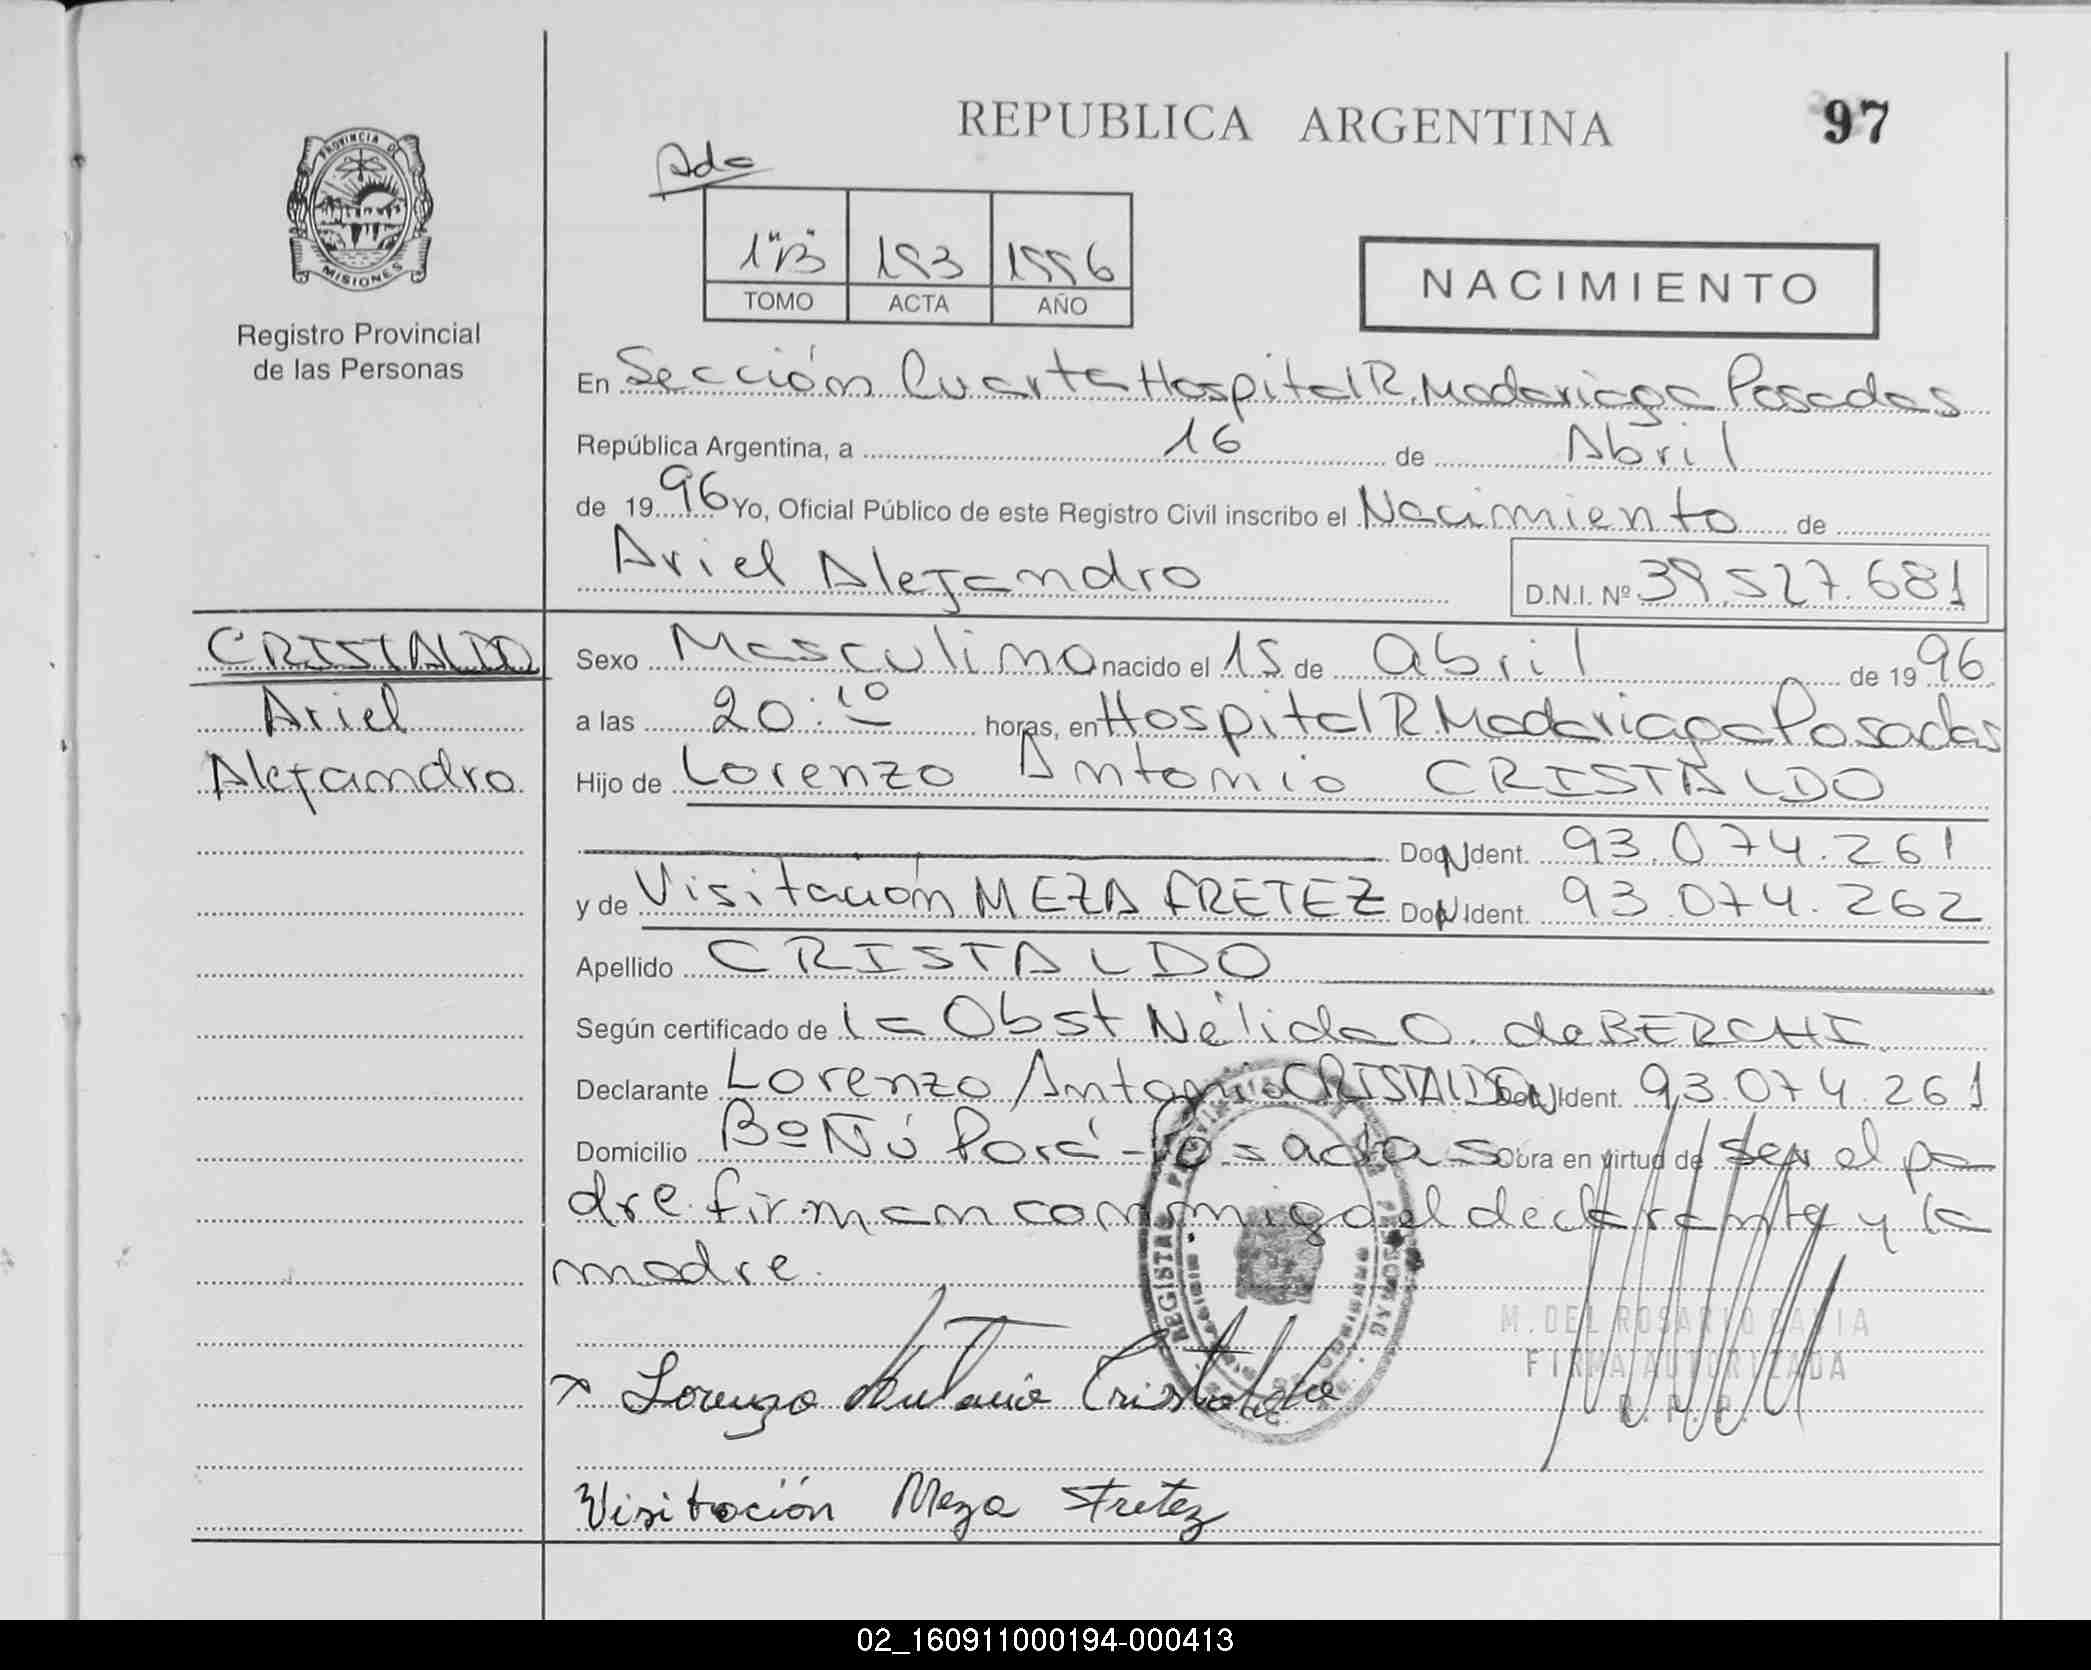 REPUBLICA ARGENTINA
97
PROVINCIA DE
MISIONES
Registro Provincial
de las Personas
Ada
1"B" 193 1996
TOMO ACTA AÑO
NACIMIENTO
En Sección Cuarta Hospital R. Madariaga Posadas
República Argentina, a 16 de Abril
de 1996 Yo, Oficial Público de este Registro Civil inscribo el Nacimiento de
Ariel Alejandro D.N.I. Nº 39.527.681
CRISTALDO
Ariel
Alejandro
Sexo Masculino nacido el 15 de abril de 1996
a las 20:10 horas, en Hospital R. Madariaga Posadas
Hijo de Lorenzo Antonio CRISTALDO
Doc. Ident. 93.074.261
y de Visitación MEZA FRETEZ Doc. Ident. 93.074.262
Apellido CRISTALDO
Según certificado de la Obst Nélida O. de BERCHI
Declarante Lorenzo Antonio CRISTALDO Doc. Ident. 93.074.261
Domicilio Bº Ñú Porá - Posadas Obra en virtud de ser el pa
dre. firman conmigo el declarante y la
madre.
M. DEL ROSARIO
FIRMA AUTORIZADA
R. P. P.
x Lorenzo Antonio Cristaldo
Visitación Meza Fretez
02_160911000194-000413